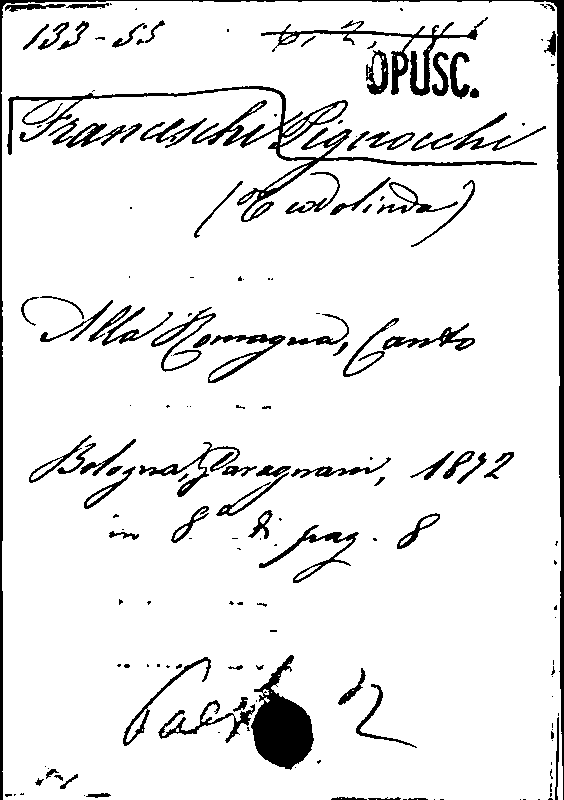 133-55
OPUSC.
Franceschi Pignocchi
(Teodolinda)
Alla Romagna, Canto
Bologna, Garagnani, 1872
in 8° di pag. 8